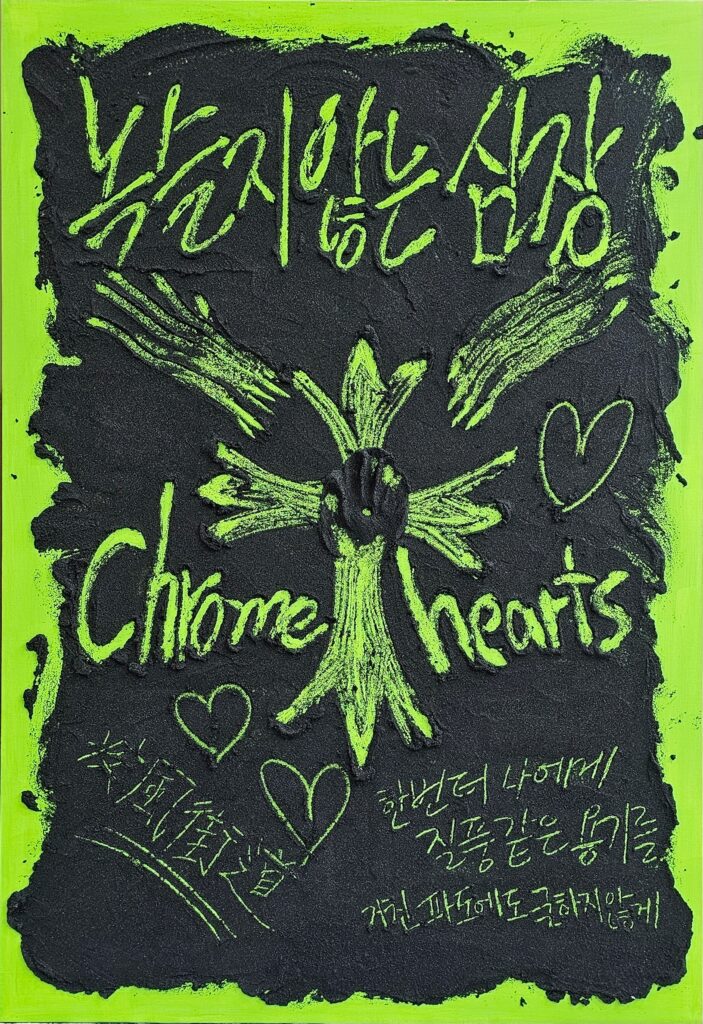 녹슬지않는 심장
Chrome hearts
疾風街道
한번 더 나에게
질풍같은 용기를
거친 파도에도 굴하지않게